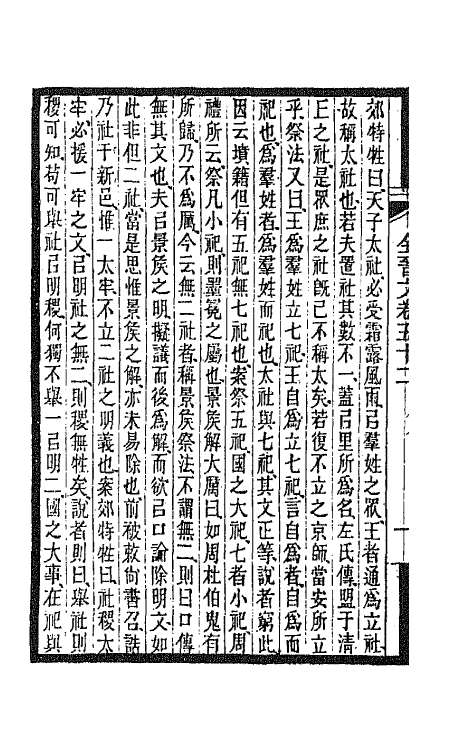 全晉文卷五十二
郊特牲曰、天子太社、必受霜露風雨、㠯羣姓之眾、王者通爲立社、
故稱太社也、若夫置社、其數不一、蓋㠯里所爲名、左氏傳盟于清
丘之社、是眾庶之社、旣已不稱太矣、若復不立之京師、當安所立
乎、祭法又曰、王爲羣姓立七祀、王自爲立七祀、言自爲者、自爲而
祀也、爲羣姓者、爲羣姓而祀也、太社與七祀、其文正等、說者窮此、
因云、墳籍但有五祀、無七祀也、案祭五祀、國之大祀、七者小祀、周
禮所云、祭凡小祀、則墨冕之屬也、景矦解大厲曰、如周杜伯鬼有
所歸、乃不爲厲、今云無二社者、稱景矦祭法不謂無二、則曰口傳
無其文也、夫㠯景矦之明、擬議而後爲解、而欲㠯口論除明文、如
此非但二社、當是思惟景矦之解、亦未易除也、前被敕尙書召誥
乃社于新邑、惟一太牢、不立二社之明義也、案郊特牲曰、社稷太
牢、必援一牢之文、㠯明社之無二、則稷無牲矣、說者則曰、舉社則
稷可知、苟可舉社㠯明稷、何獨不舉一㠯明二、國之大事、在祀與